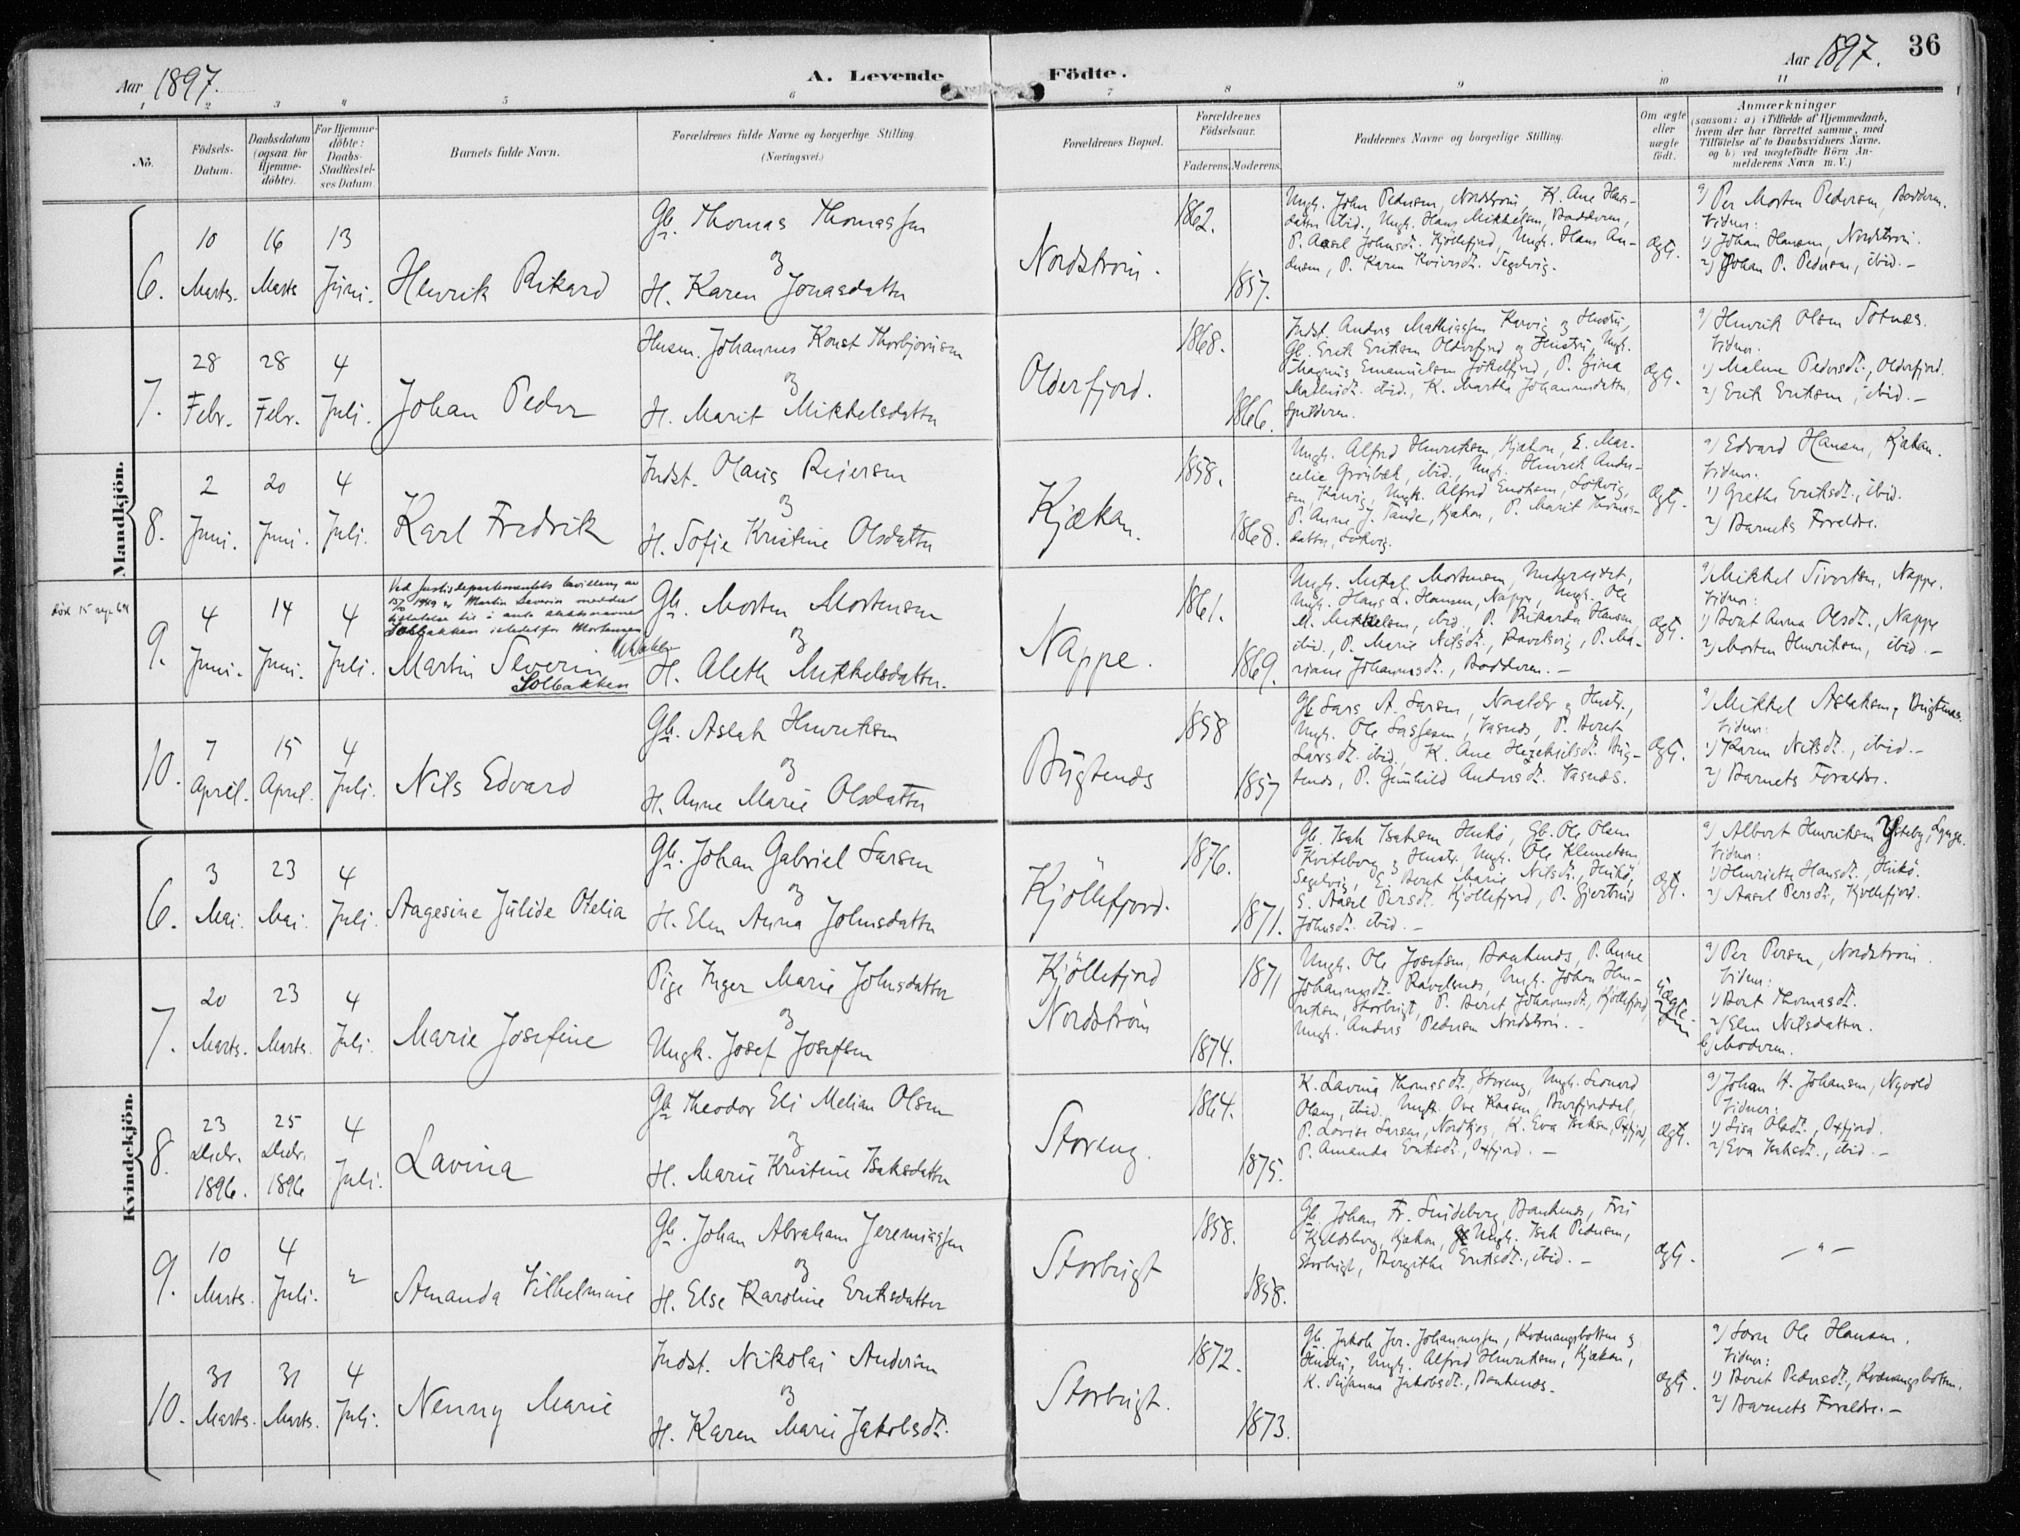 Aar 1897.
A. Levende
Födte.
Aar 1897.
36
1 2 3 4 5 6 7 8 9 10 11
No.
Födsels-
Datum.
Daabsdatum
(ogsaa for
Hjemme-
döbte).
For Hjemme-
döbte:
Daabs-
Stadfæstel-
ses Datum.
Barnets fulde Navn.
Forældrenes fulde Navne og borgerlige Stilling.
(Næringsvei.)
Forældrenes Bopæl.
Forældrenes
Födselsaar.
Faderens. Moderens.
Faddernes Navne og borgerlige Stilling.
Om ægte
eller
uægte
födt.
Anmærkninger
(saasom: a) i Tilfælde af Hjemmedaab,
hvem der har forrettet samme, med
Tilföielse af to Daabsvidners Navne,
og b) ved uægtefödte Börn An-
melderens Navn m. V.)
Mandkjön.
6.
10
Marts.
16
Marts
13
Juni.
Henrik Rikard
Gb. Thomas Thomassen
og
H. Karen Jonasdatter
Nordström.
1862.
1857.
Ungk. John Pedersen, Nordström, K. Ane Hans-
datter ibid., Ungk. Hans Mikkelsen, Badderen,
P. Aasel Johnsdt. Kjöllefjord, Ungk. Hans An-
dersen, P. Karen Segelvig.
Ægt.
a) Per Morten Pedersen, Badderen.
Vidner:
1) Johan Hansen, Nordström.
2) Johan P. Pedersen, ibid. –
7.
28
Febr.
28
Febr.
4
Juli.
Johan Peder
Husm. Johannes Konst Thorbjörnsen
og
H. Marit Mikkelsdatter
Olderfjord.
1868.
1866.
Indst. Anders Mathiassen Karvig og Hustru,
Gb. Erik Eriksen Olderfjord og Hustru, Ungk.
Magnus Emanuelsen Jökelfjord, P. Gjina
ibid., K. Martha Johannesdatter
Spilderen.
Ægt.
a) Henrik Olsen Sotnæs.
Vidner:
1) Malene Pedersdt., Olderfjord.
2) Erik Eriksen, ibid. –
8.
2
Juni.
20
Juni.
4
Juli.
Karl Fredrik
Indst. Olaus Reiersen
og
H. Sofie Kristine Olsdatter
Kjækan.
1858.
1868.
Ungk. Alfred Henriksen, Kjækan, E. Mar-
celie Grönbæk, ibid., Ungk. Henrik Ander-
sen, Karvig, Ungk. Alfred Sökvig,
P. Anne J. Tande, Kjækan, P. Marit Thomas-
datter, Sökvig.
Ægt.
a) Edvard Hansen, Kjækan.
Vidner:
1) Grethe Eriksdt., ibid.
2) Barnets Forældre.
9.
4
Juni.
14
Juni.
4
Juli.
Ved Justisdepartementets bevilling av
15/10 1949 er Martin Severin meddelt
tillatelse til å anta slektsnavnet
Solbakken istedetfor Mortensen
Martin Severin
Solbakken
Gb. Morten Mortensen
og
H. Aleth Mikkelsdatter.
Nappe.
1861.
1869.
Ungk. Mikkel Mortensen, Undereidet,
Ungk. Hans L. Hansen, Nappe, Ungk. Ole
M. Mikkelsen, ibid., P. Rikarda Hansen
ibid., P. Marie Nilsdt., Ravelsvig, P. Ma-
riane Johannesdt., Badderen. –
Ægt.
a) Mikkel Sivertsen, Nappe.
Vidner:
1) Berit Anna Olsdt., Nappe
2) Morten Henriksen, ibid. –
10.
7
April.
15
April.
4
Juli.
Nils Edvard
Gb. Aslak Henriksen
og
H. Anne Marie Olsdatter
Bugtenæs
1858
1857
Gb. Lars A. Larsen, og Hustr.,
Ungk. Ole Lassesen, Vasnæs, P. Berit
Larsdt. ibid., K. Ane Bug-
tenæs, P. Gunhild Andersdt. Vasnæs.
Ægt.
a) Mikkel Aslaksen, Bugtenæs.
Vidner:
1) Karen Nilsdt., ibid. –
2) Barnets Forældre.
Kvindekjön.
6.
3
Mai.
23
Mai.
4
Juli.
Aagesine Julide Otelia
Gb. Johan Gabriel Larsen
og
H. Elen Anna Johnsdatter
Kjöllefjord.
1876.
1871.
Gb. Isak Isaksen Hukö, Gb. Ole Olsen
Kviteberg og Hustr. Ungk. Ole Klemetsen,
Segelvig, E. Berit Marie Nilsdt., Hukö,
E. Aasel Persdt. Kjöllefjord, P. Gjertrud
Johnsdt. ibid. –
Ægt.
a) Albert Henriksen Ysteby, Lynge.
Vidner:
1) Henriette Hansdt., Hukö.
2) Aasel Persdt., Kjöllefjord.
7.
20
Marts.
23
Marts.
4
Juli.
Marie Josefine
Pige Inger Marie Johnsdatter
og
Ungk. Josef Josefsen
Kjöllefjord
Nordström
1871
1874.
Ungk. Ole Josefsen, Bankenæs, P. Anne
Johannesdt. Ravelsnæs, Ungk. Johan Hen-
riksen, Storbugt, P. Berit Johannesdt., Kjöllefjord
Ungk. Anders Pedersen Nordström. –
Uægte
a) Per Persen, Nordström.
Vidner:
1) Berit Thomasdt.
2) Elen Nilsdatter.
b) Moderen.
8.
23
Decbr.
1896.
25
Decbr.
1896
4
Juli.
Lavina
Gb. Theodor Eli Melian Olsen
og
H. Marie Kristine Isaksdatter
Storeng.
1864.
1875.
K. Lavina Thomasdt., Storeng, Ungk. Leonard
Olsen, ibid. Ungk. Ove Kaasen, Burfjorddal,
P. Lovise Larsen, Nordkjos, K. Eva Isaksen, Oxfjord,
P. Amanda Eriksdt., Oxfjord. –
Ægt.
a) Johan H. Johansen, Nyvold
Vidner:
1) Lisa Olsdt., Oxfjord.
2) Eva Isaksdt., ibid. –
9.
10
Marts.
4
Juli.
"
Amanda Vilhelmine
Gb. Johan Abraham Jeremiassen
og
H. Else Karoline Eriksdatter
Storbugt
1858.
1858.
Gb. Johan Fr. Smideberg, Bankenæs, Fru
Kjeldsberg, Kjækan, Ungk. Isak Pedersen,
Storbugt, Bergithe Eriksdt., ibid. –
Ægt.
– " –
10.
31
Marts.
31
Marts.
4
Juli.
Nenny Marie
Indst. Nikolai Andersen
og
H. Karen Marie Jakobsdt.
Storbugt.
1872.
1873.
Gb. Jakob Jor. Johannessen, Kvænangsbotten og
Hustru, Ungk. Alfred Henriksen, Kjækan,
K. Susanna Jakobsdt., Bankenæs.
Ægt.
a) Sören Ole Hansen.
Vidner:
1) Berit Pedersdt., Kvænangsbotten.
2) Barnets Forældre. –